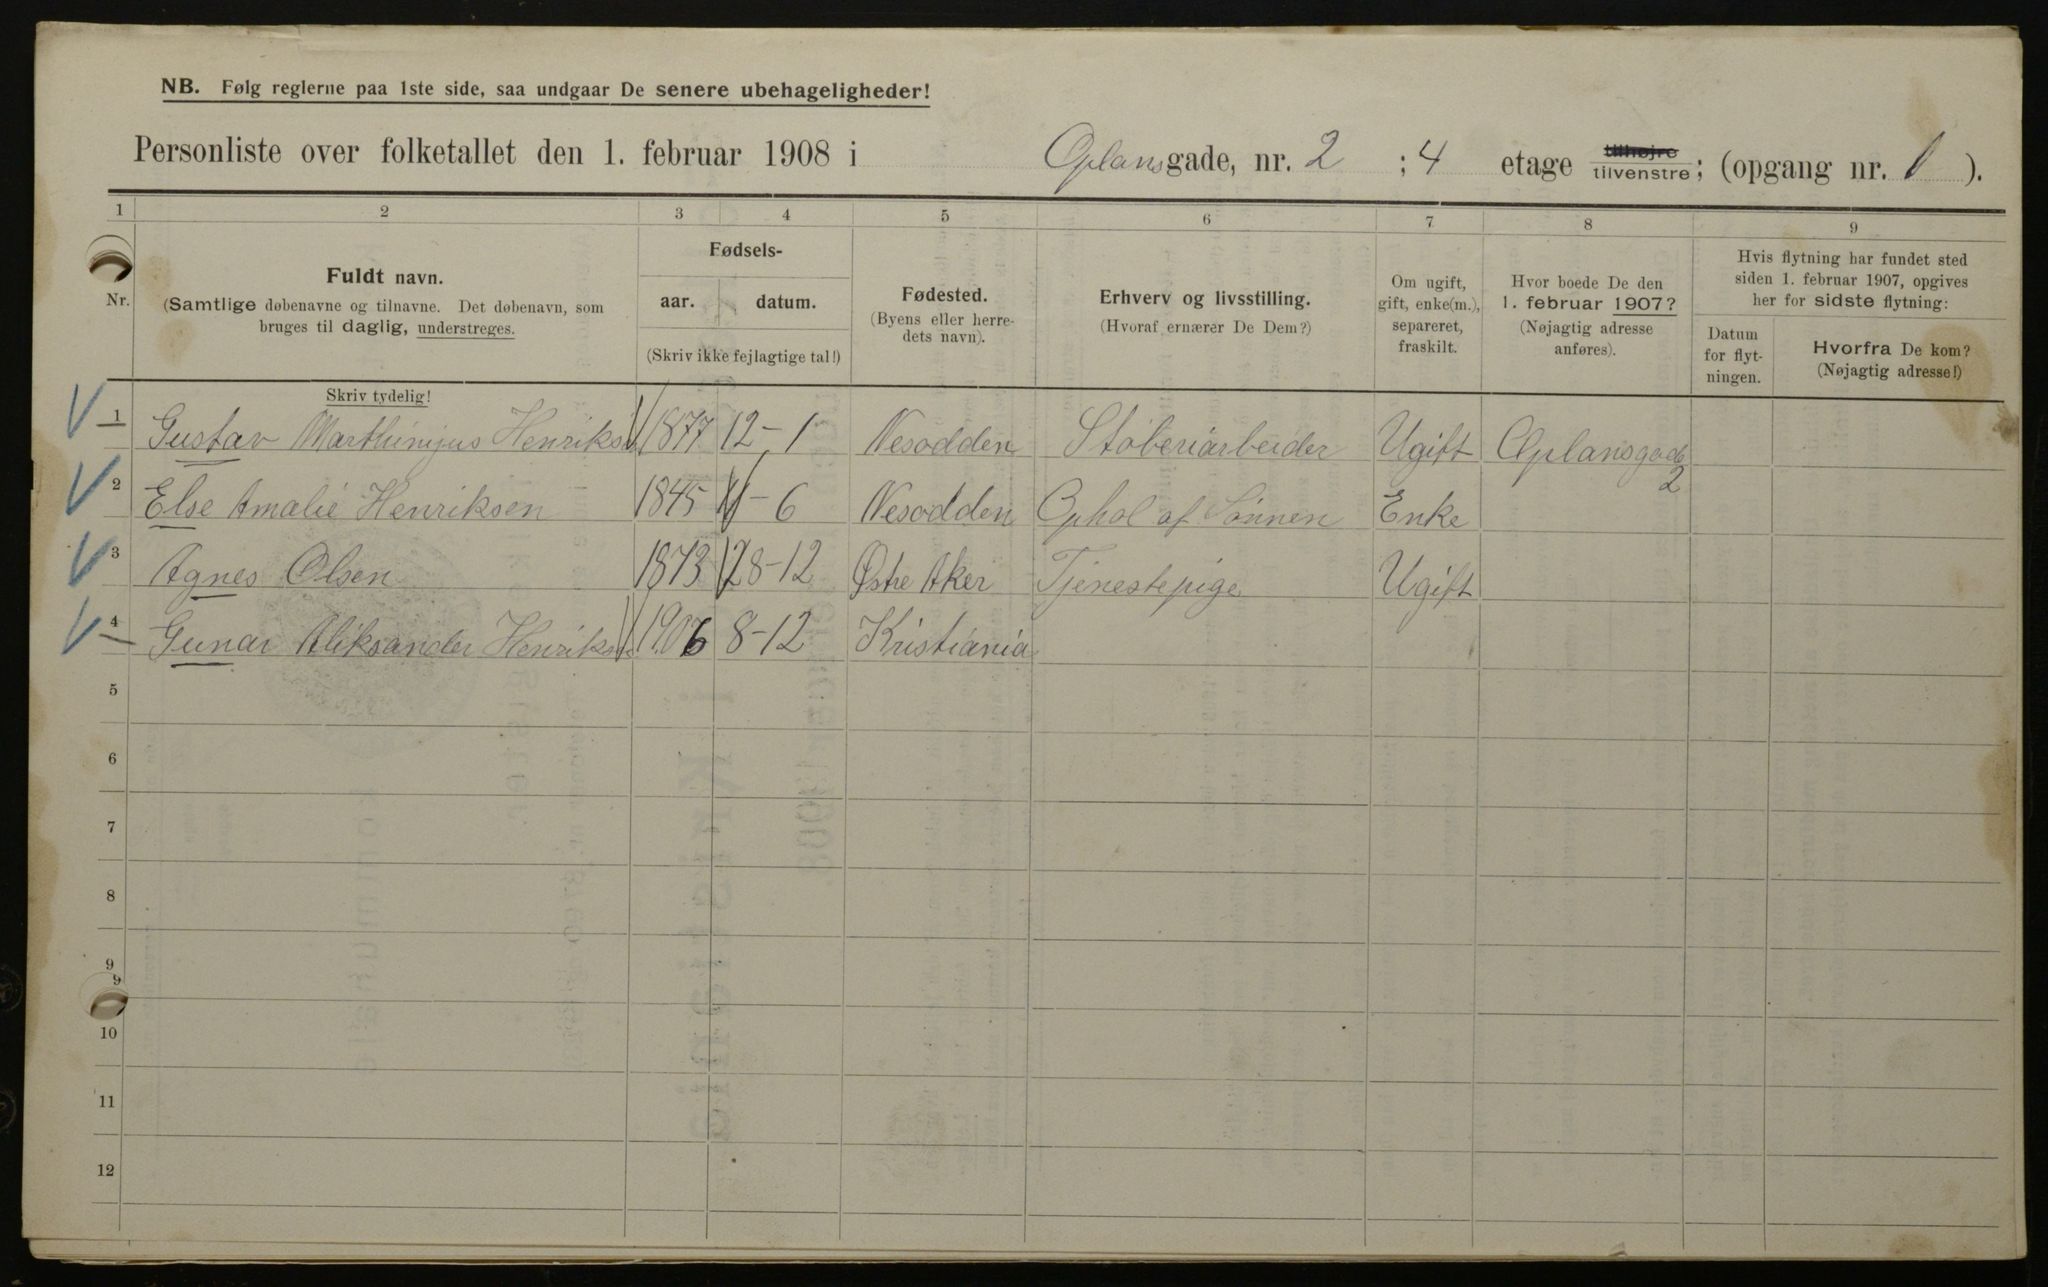 NB. Følg reglerne paa 1ste side, saa undgaar De senere ubehageligheder!
Personliste over folketallet den 1. februar 1908 i Oplansgade, nr. 2 ; 4 etage tilhøjre tilvenstre; (opgang nr. 1 ).
1 2 3 4 5 6 7 8 9
Nr.
Fuldt navn.
(Samtlige døbenavne og tilnavne. Det døbenavn, som
bruges til daglig, understreges.
Skriv tydelig!
Fødsels-
aar. datum.
(Skriv ikke fejlagtige tal!)
Fødested.
(Byens eller herre-
dets navn).
Erhverv og livsstilling.
(Hvoraf ernærer De Dem?)
Om ugift,
gift, enke(m.),
separeret,
fraskilt.
Hvor boede De den
1. februar 1907?
(Nøjagtig adresse
anføres).
Hvis flytning har fundet sted
siden 1. februar 1907, opgives
her for sidste flytning:
Datum
for flyt-
ningen.
Hvorfra De kom?
(Nøjagtig adresse!)
1 Gustav Marthinijus Henriks 1877 12-1 Nesodden Støberiarbeider Ugift Oplansgade 2
2 Else Amalie Henriksen 1845 6 Nesodden Ophol af Sønnen Enke
3 Agnes Olsen 1873 28-12 Østre Aker Tjenestepige Ugift
4 Gunar Aliksander Henriks 1906 8-12 Kristiania
5
6
7
8
9
9
10
11
12